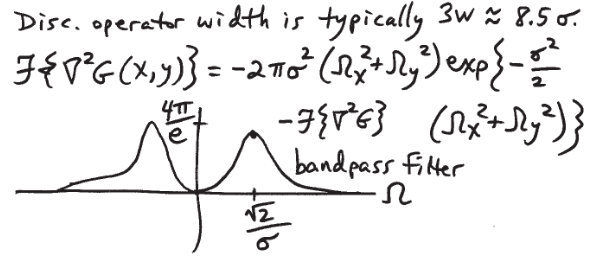 Disc. operator width is typically 3w ≈ 8.5 σ.
ℱ{∇²G(x,y)} = -2πσ² (Ωx²+Ωy²) exp{-σ²/2 (Ωx²+Ωy²)}
4π/e
-ℱ{∇²G}
bandpass filter
Ω
√2/σ